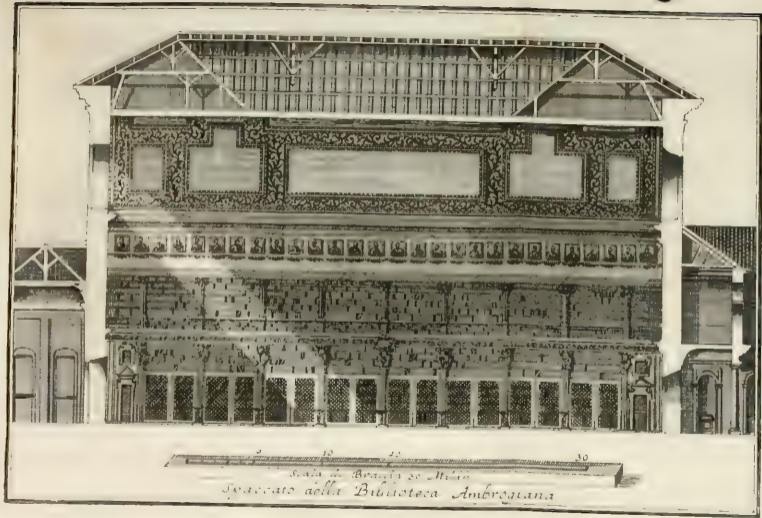 5 10 20 30
Scala di Braccia 30 Milan
Spaccato della Biblioteca Ambrogiana